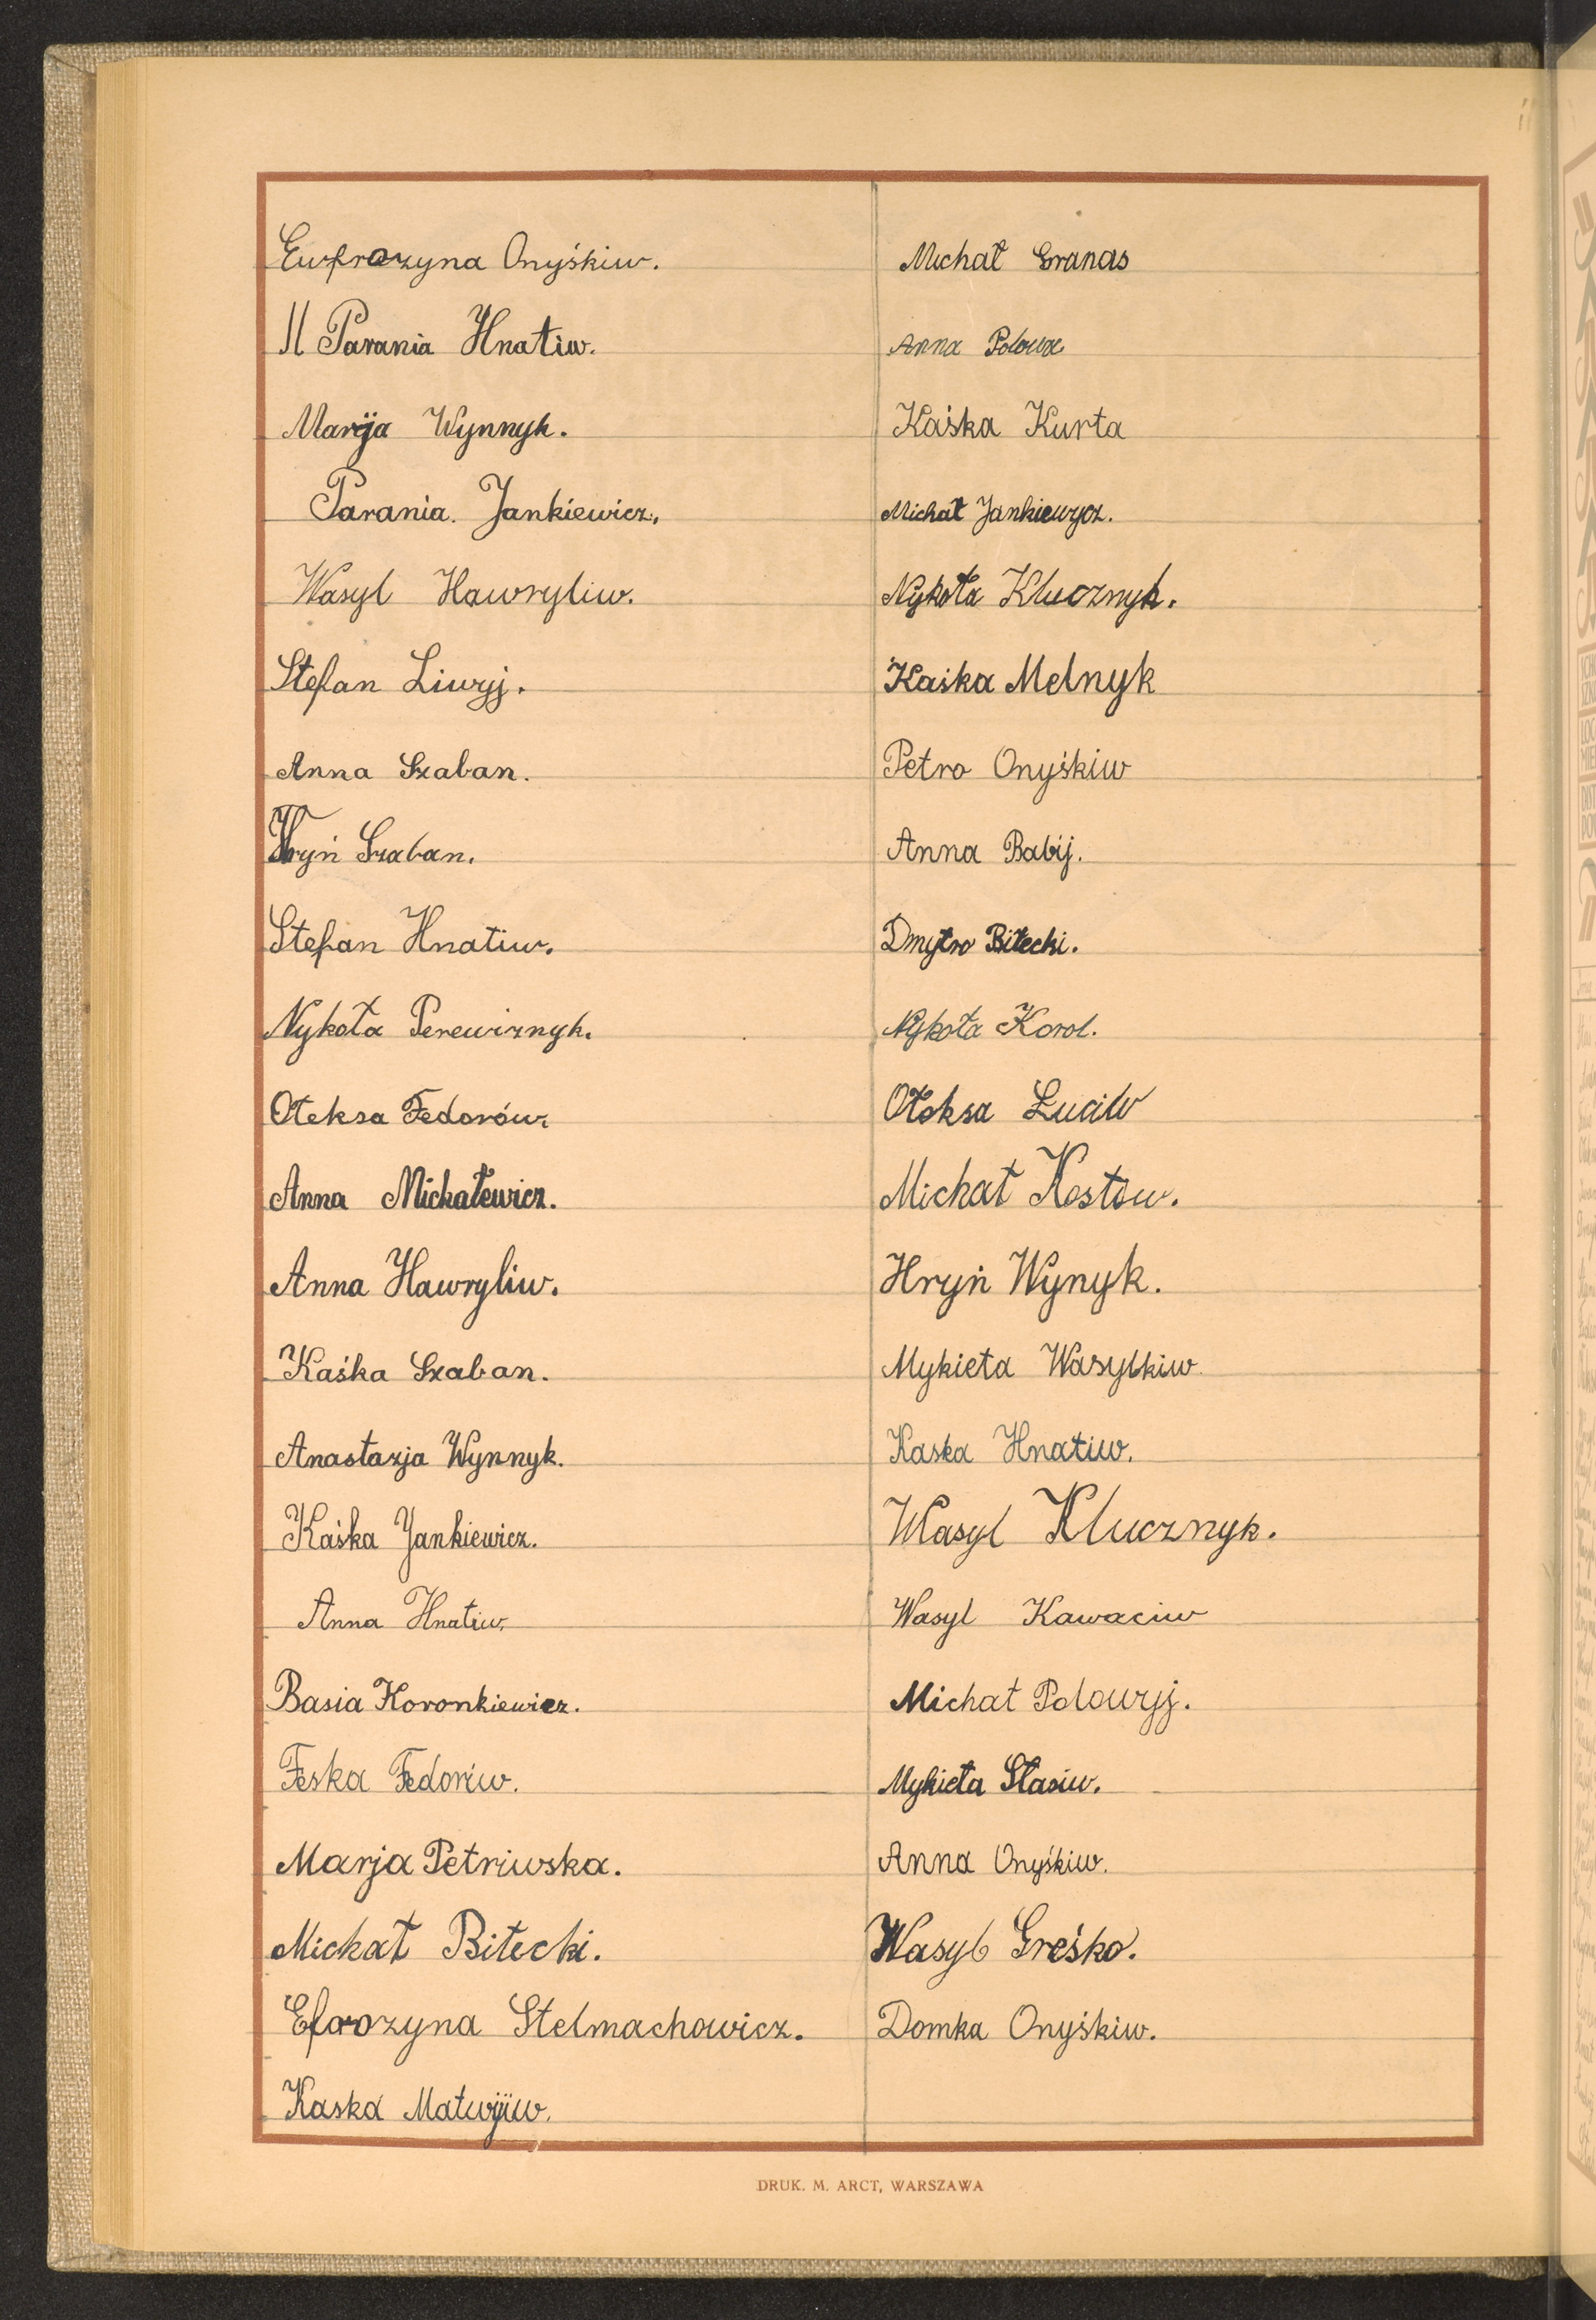 Eufrozyna Onyśkiw.
II Parania Hnatiw.
Marija Wynnyk.
Parania. Jankiewicz.
Wasyl Hawryliw.
Stefan Liwyj.
Anna Szaban.
Hryń Szaban.
Stefan Hnatiw.
Nykoła Perewiznyk.
Ołeksa Fedorów.
Anna Michałewicz.
Anna Hawryliw.
Kaśka Szaban.
Anastazja Wynnyk.
Kaśka Jankiewicz.
Anna Hnatiw.
Basia Horonkiewicz.
Feska Fedoriw.
Marja Petriwska.
Michał Biłecki.
Eforozyna Stelmachowicz.
Kaska Matwijiw.
Michał Granas
Anna Polowa
Kaśka Kurta
Michał Jankiewycz.
Nykoła Klucznyk.
Kaśka Melnyk
Petro Onyśkiw
Anna Babij.
Dmytro Biłecki.
Nykoła Korol.
Ołeksa Luciw
Michał Kostow.
Hryń Wynyk.
Mykieta Wasylkiw
Kaska Hnatiw.
Wasyl Klucznyk.
Wasyl Kawaciw
Michał Polowyj.
Mykieta Stasiw.
Anna Onyśkiw.
Wasyl Greśko.
Domka Onyśkiw.
DRUK. M. ARCT, WARSZAWA